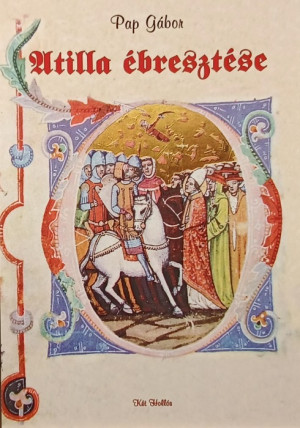 Pap Gábor
Atilla ébresztése
Két Hollós